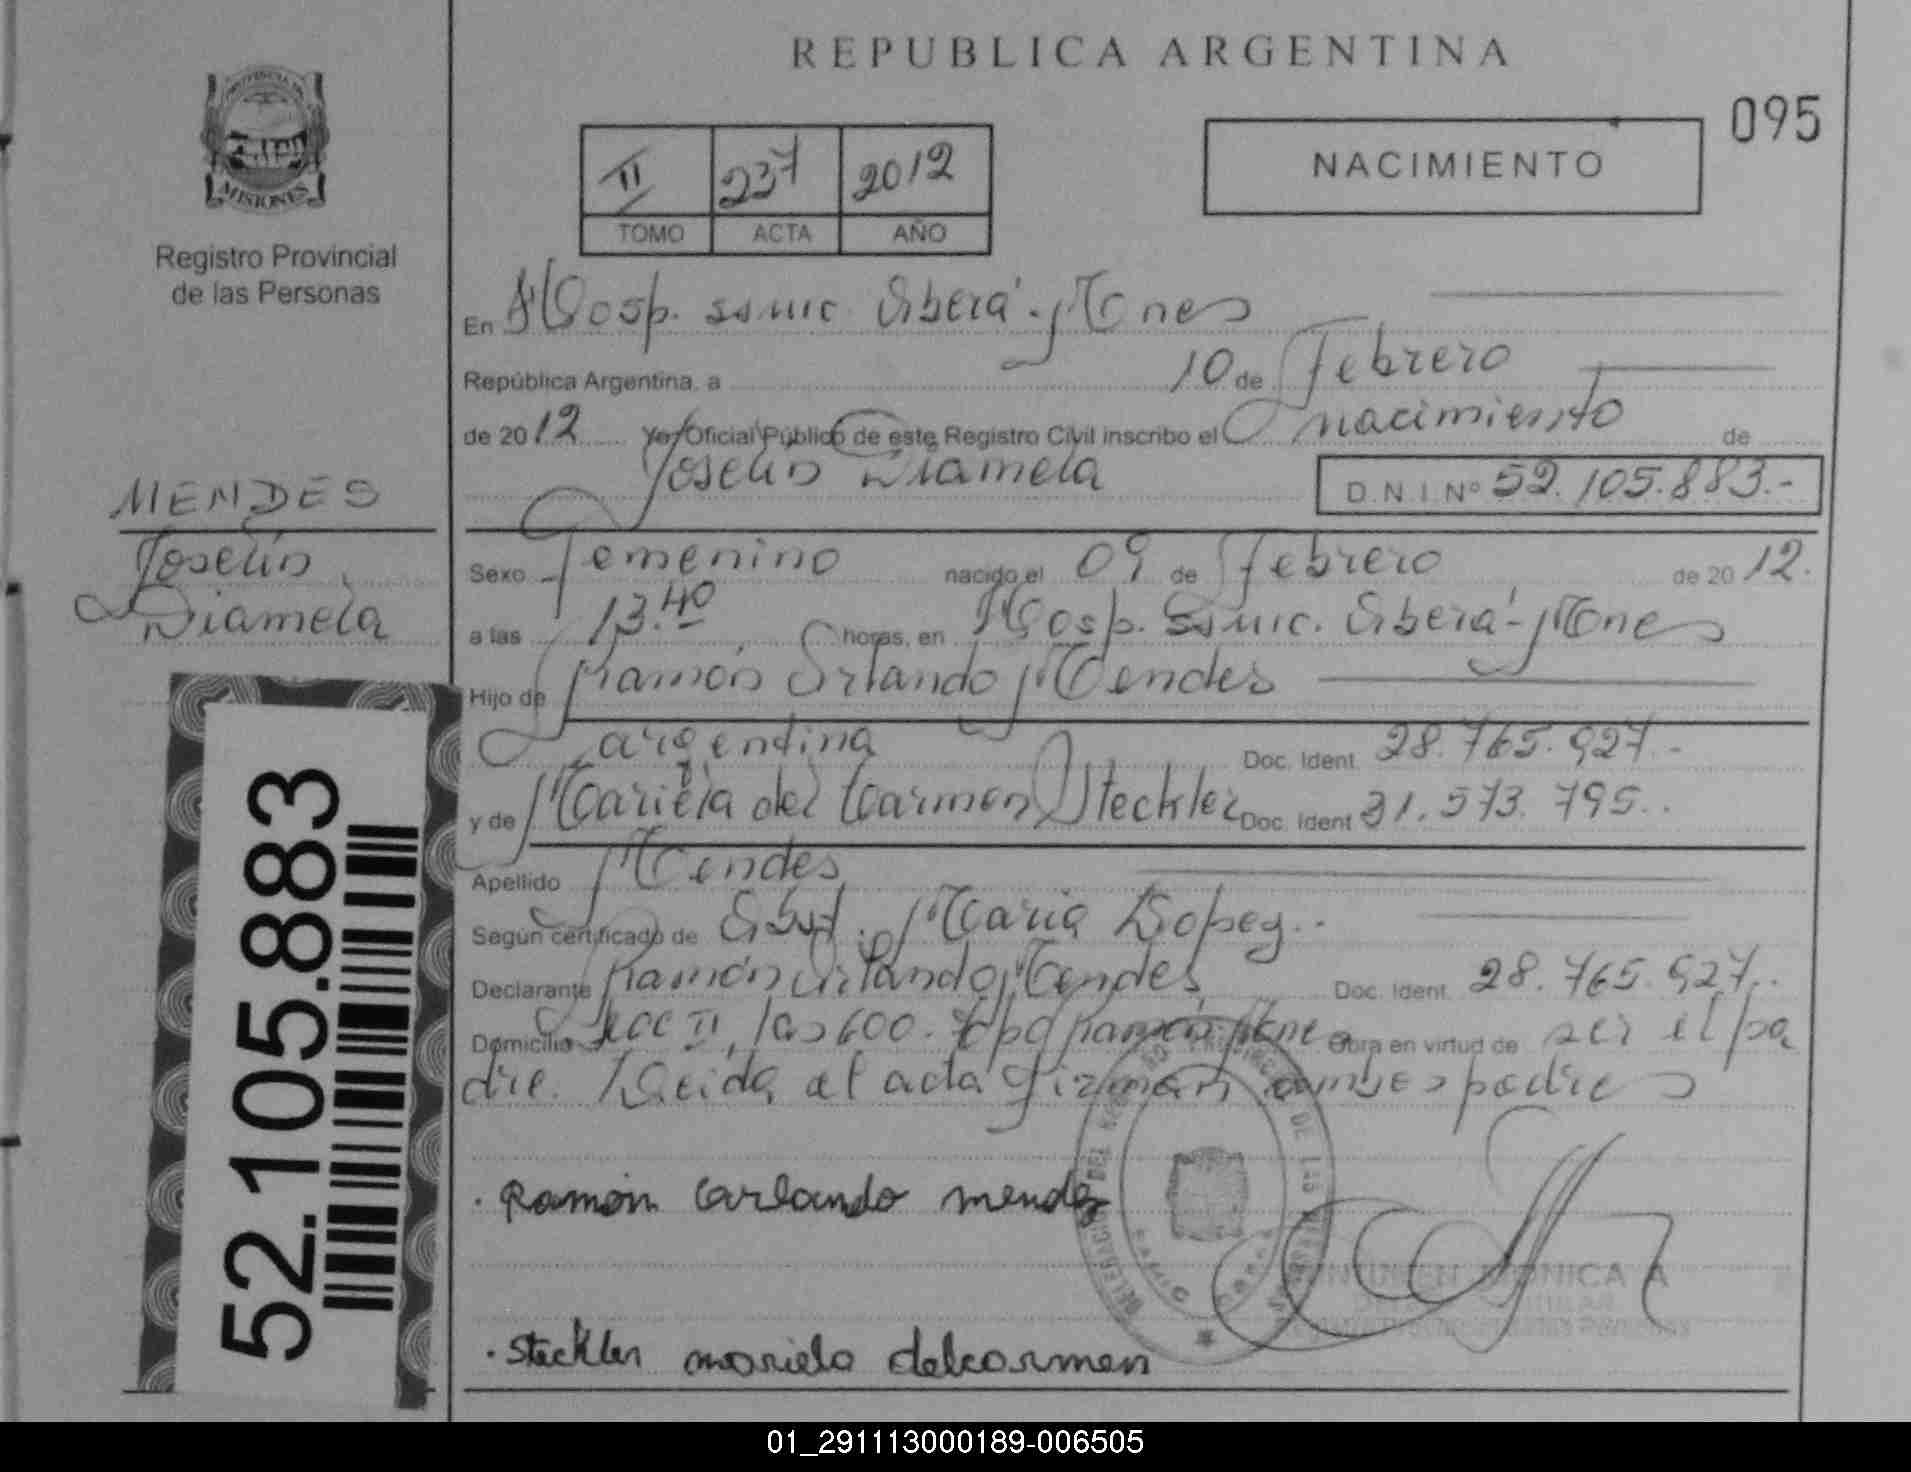 REPUBLICA ARGENTINA
095
NACIMIENTO
II 237 2012
TOMO ACTA AÑO
PROVINCIA DE
MISIONES
Registro Provincial
de las Personas
MENDES
Joselin
Diamela
52.105.883
En Hosp. Oberá - Mones
República Argentina, a 10 de Febrero
de 2012 Yo Oficial Público de este Registro Civil inscribo el nacimiento de
Joselin Diamela D.N.I. Nº 52.105.883.-
Sexo Femenino nacido el 09 de Febrero de 2012.
a las 13.40 horas, en Hosp. Oberá - Mones
Hijo de Ramón Orlando Mendes
argentina Doc. Ident. 28.765.927.-
y de Mariela del Carmen Steckler Doc. Ident 31.573.795..
Apellido Mendes
Según certificado de Obst. Maria Lopez..
Declarante Ramón Orlando Mendes Doc. Ident. 28.765.927..
Domicilio secc II, las 600. Obra en virtud de ser el pa
dre. Leida el acta firman ambos padres
DELEGACION
DE LAS
. Ramón Orlando mendes
MONICA A
TITULAR
. Steckler mariela delcarmen
01_291113000189-006505